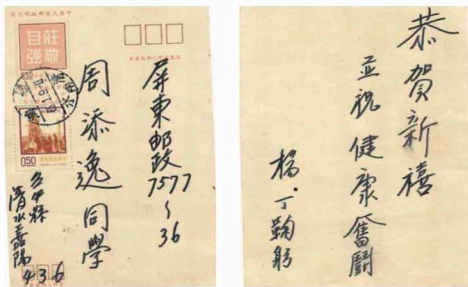 莊敬
自強
050
屏東郵政
7577
~
36
周添逸同學
台中縣
清水嘉陽
436
恭賀新禧
並祝健康奮鬪
楊·丁鞠躬